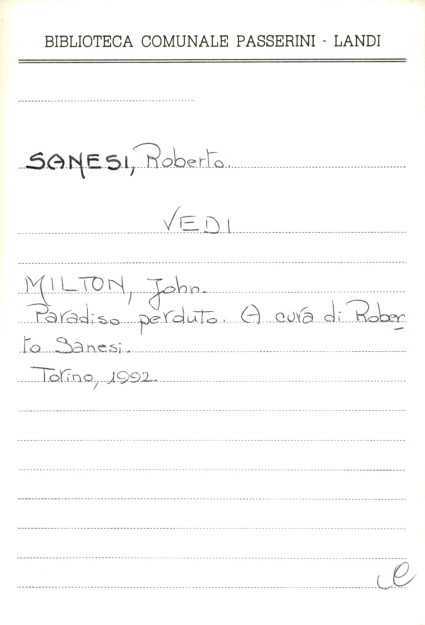 BIBLIOTECA COMUNALE PASSERINI - LANDI
SANESI, Roberto.
VEDI
MILTON, John.
Paradiso perduto. A cura di Rober
to Sanesi.
Torino, 1992.